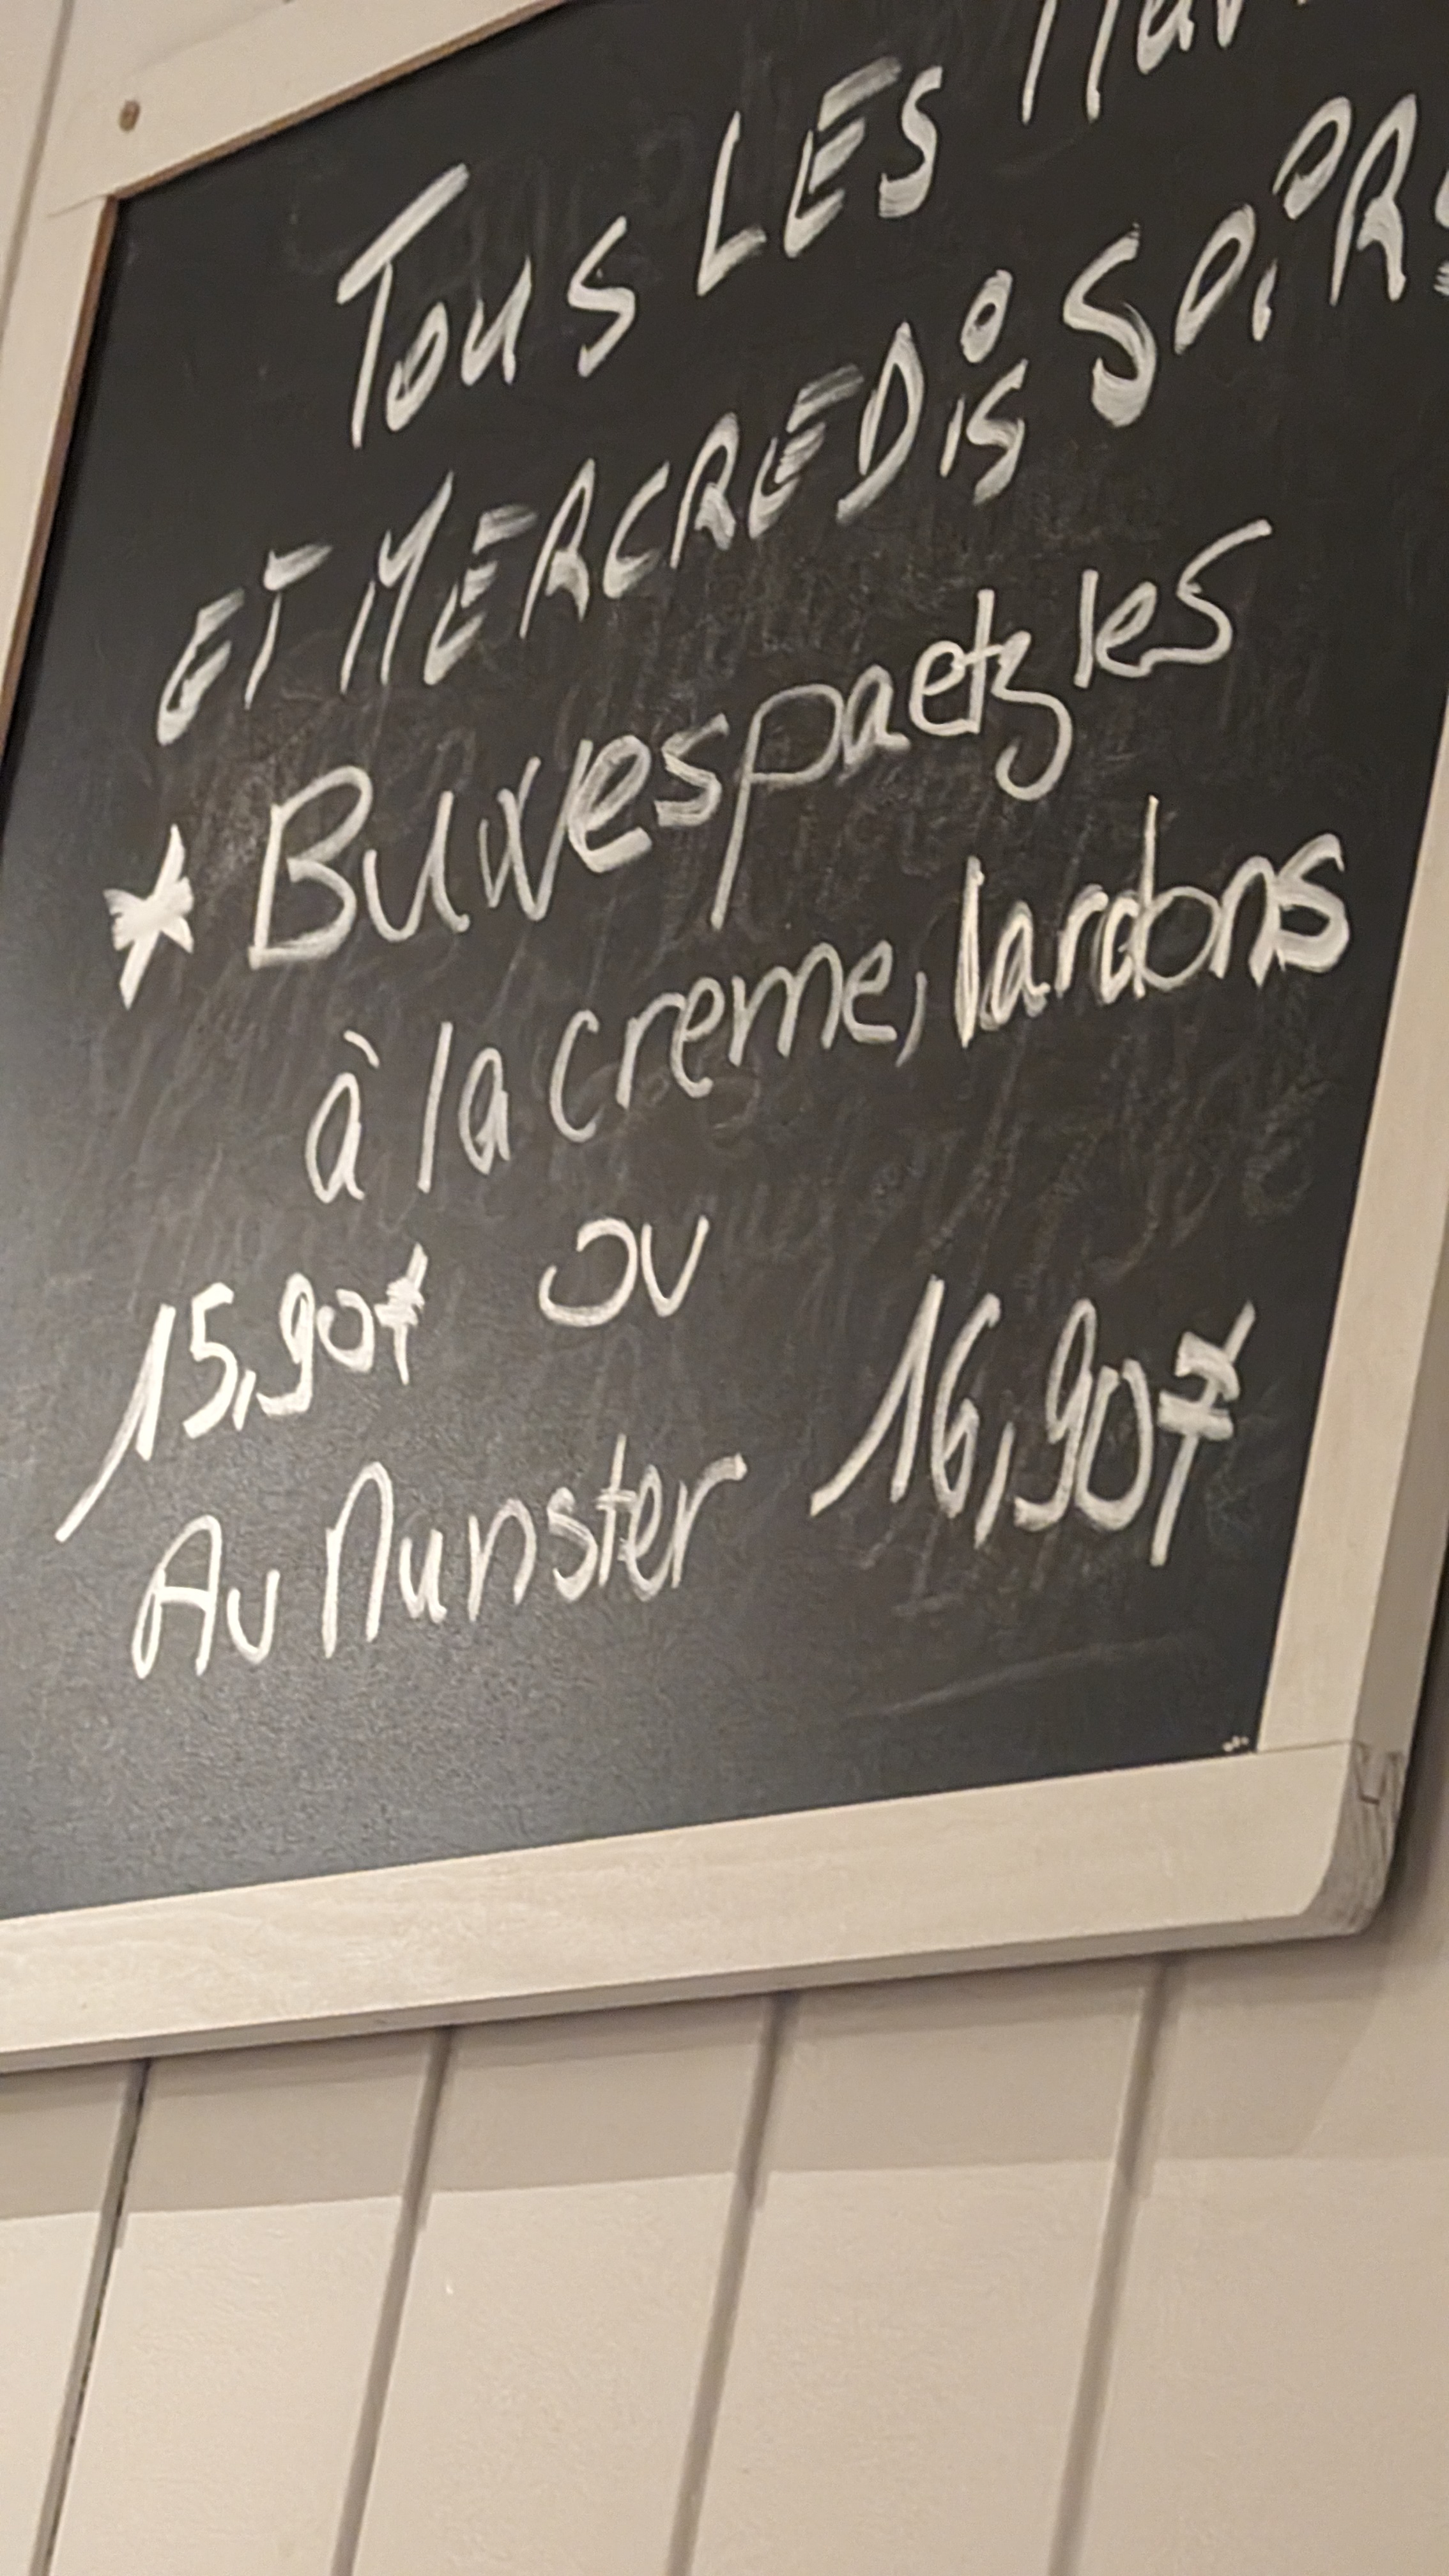 Tous LES Mar
ET MERCREDIS SOIRS
* Buwespaetzles
à la creme, lardons
15,90€ ou
Au Munster 16,90€